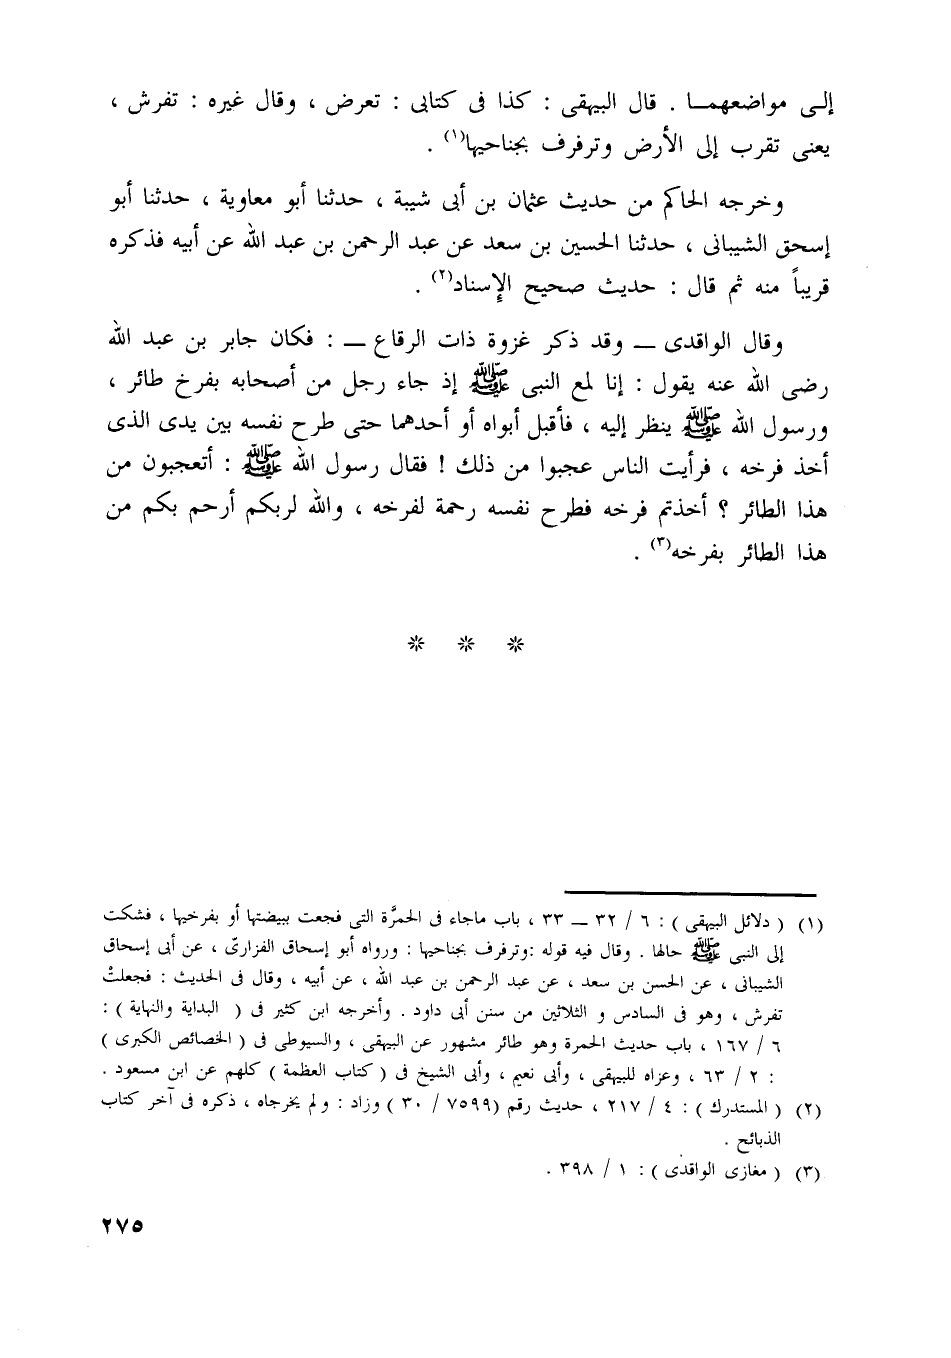 إلى مواضعهما . قال البيهقى : كذا فى كتابى : تعرض ، وقال غيره : تفرش ،
يعنى تقرب إلى الأرض وترفرف بجناحيها(١) .
وخرجه الحاكم من حديث عثمان بن أبى شيبة ، حدثنا أبو معاوية ، حدثنا أبو
إسحق الشيبانى ، حدثنا الحسين بن سعد عن عبد الرحمن بن عبد الله عن أبيه فذكره
قريباً منه ثم قال : حديث صحيح الإسناد(٢) .
وقال الواقدى ــ وقد ذكر غزوة ذات الرقاع ــ : فكان جابر بن عبد الله
رضى الله عنه يقول : إنا لمع النبى ﷺ إذ جاء رجل من أصحابه بفرخ طائر ،
ورسول الله ﷺ ينظر إليه ، فأقبل أبواه أو أحدهما حتى طرح نفسه بين يدى الذى
أخذ فرخه ، فرأيت الناس عجبوا من ذلك ! فقال رسول الله ﷺ : أتعجبون من
هذا الطائر ؟ أخذتم فرخه فطرح نفسه رحمة لفرخه ، والله لربكم أرحم بكم من
هذا الطائر بفرخه(٣) .
* * *
(١) ( دلائل البيهقى ) : ٦ / ٣٢ ــ ٣٣ ، باب ماجاء فى الحمَّرة التى فجعت ببيضتها أو بفرخيها ، فشكت
إلى النبى ﷺ حالها . وقال فيه قوله :وترفرف بجناحيها : ورواه أبو إسحاق الفزارىّ ، عن أبى إسحاق
الشيبانى ، عن الحسن بن سعد ، عن عبد الرحمن بن عبد الله ، عن أبيه ، وقال فى الحديث : فجعلتْ
تفرش ، وهو فى السادس و الثلاثين من سنن أبى داود . وأخرجه ابن كثير فى ( البداية والنهاية ) :
٦ / ١٦٧ ، باب حديث الحمرة وهو طائر مشهور عن البيهقى ، والسيوطى فى ( الخصائص الكبرى )
: ٢ / ٦٣ ، وعزاه للبيهقى ، وأبى نعيم ، وأبى الشيخ فى ( كتاب العظمة ) كلهم عن ابن مسعود .
(٢) ( المستدرك ) : ٤ / ٢١٧ ، حديث رقم (٧٥٩٩ / ٣٠ ) وزاد : ولم يخرجاه ، ذكره فى آخر كتاب
الذبائح .
(٣) ( مغازى الواقدى ) : ١ / ٣٩٨ .
٢٧٥